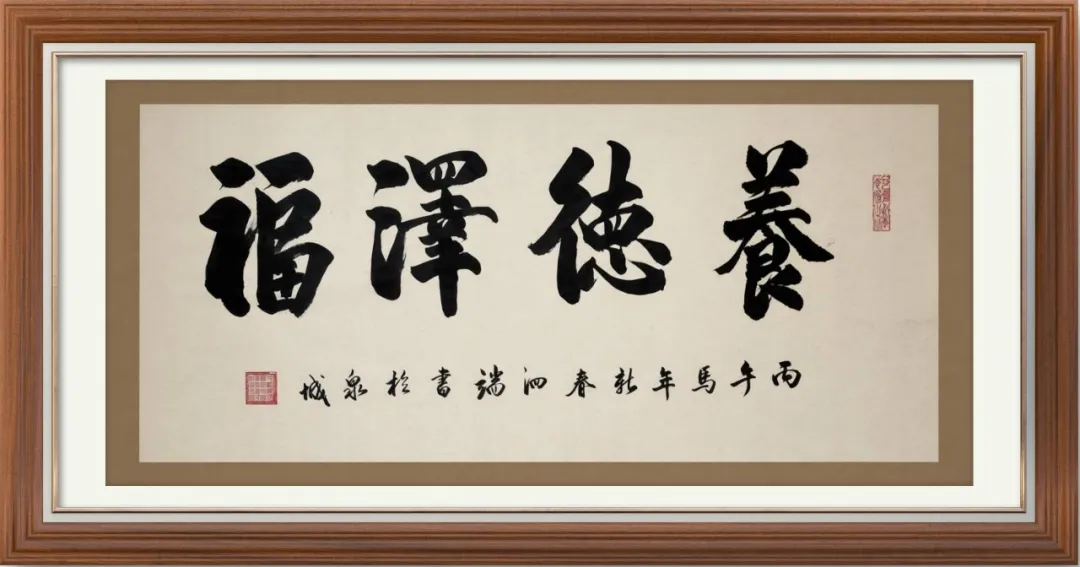 養德澤福
丙午馬年新春泗端書於泉城